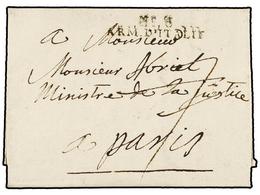 Nº. 8
ARM. D'ITALIE
A Monsieur
Monsieur Abrial
Ministre de la Justice
a paris